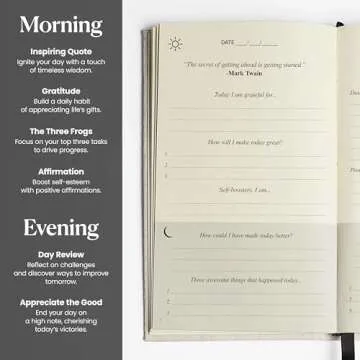 Morning
Inspiring Quote
Ignite your day with a touch
of timeless wisdom.
Gratitude
Build a daily habit
of appreciating life's gifts.
The Three Frogs
Focus on your top three tasks
to drive progress.
Affirmation
Boost self-esteem
with positive affirmations.
Evening
Day Review
Reflect on challenges
and discover ways to improve
tomorrow.
Appreciate the Good
End your day on
a high note, cherishing
today's victories.
DATE __/__/__
"The secret of getting ahead is getting started."
-Mark Twain
Today I am grateful for...
How will I make today great?
1
2
3
Self-boosters. I am...
How could I have made today better?
Three awesome things that happened today...
1
2
3